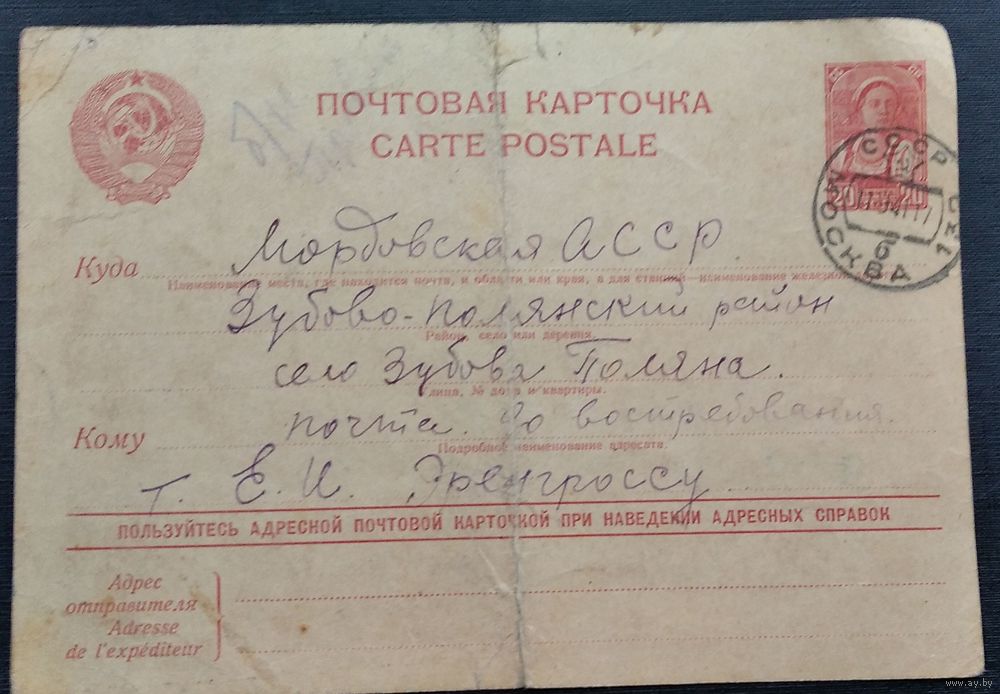 ПОЧТОВАЯ КАРТОЧКА
CARTE POSTALE
СССР
МОСКВА
6
20 20
Куда Мордовская АССР
Наименование места, где находится почта, и области или края, а для станций—наименование железной
Зубово-Полянский район
Район, село или деревня.
село Зубова Поляна.
улица, № дома и квартиры.
почта. До востребования.
Кому
Подробное наименование адресата.
т. Е. И. Эренгроссу
ПОЛЬЗУЙТЕСЬ АДРЕСНОЙ ПОЧТОВОЙ КАРТОЧКОЙ ПРИ НАВЕДЕНИИ АДРЕСНЫХ СПРАВОК
Адрес
отправителя
Adresse
de l'expéditeur
www.ay.by